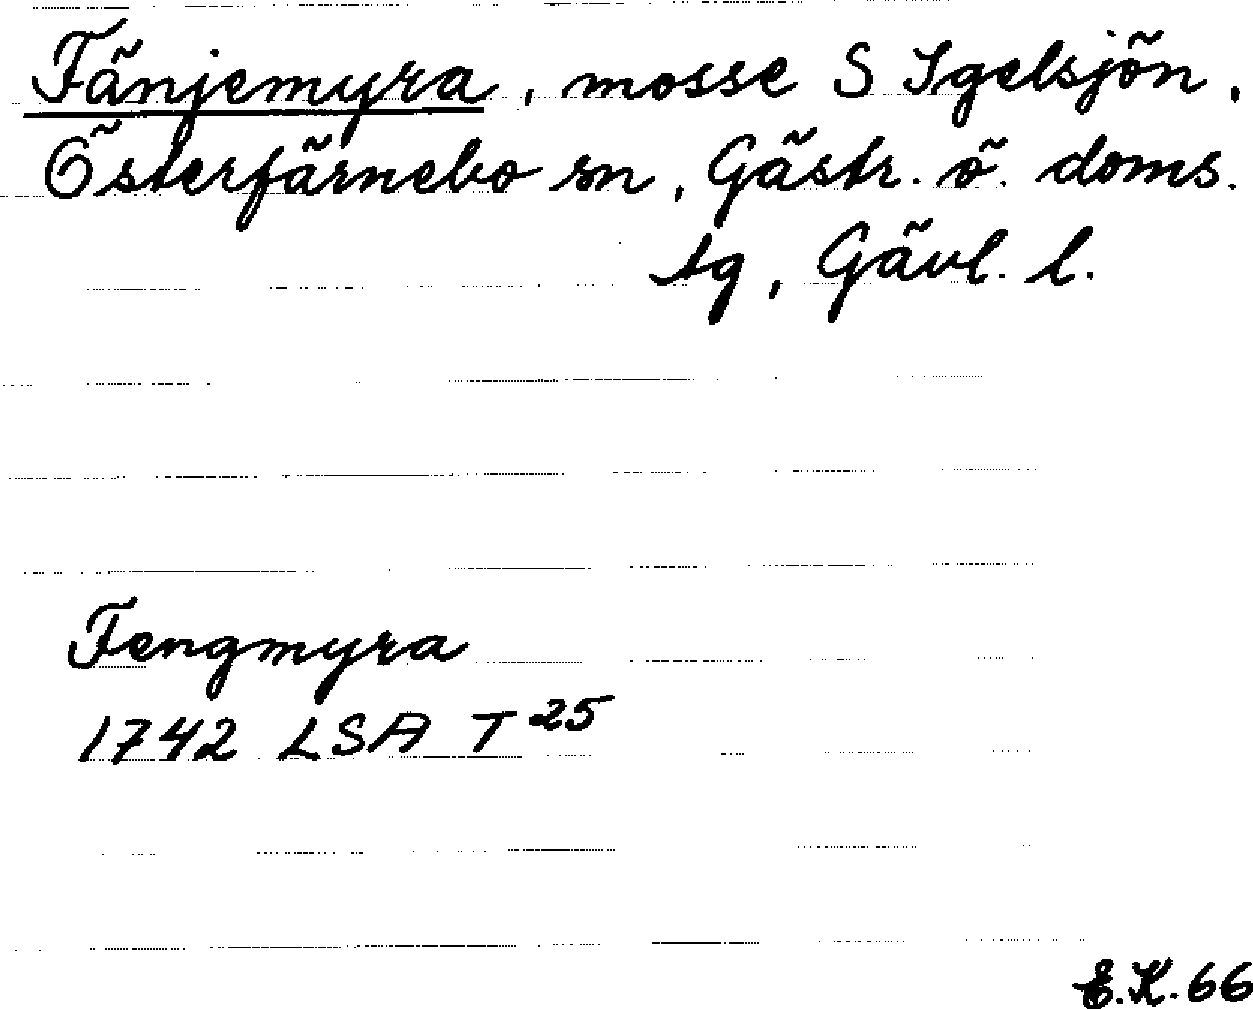 Fänjemyra, mosse S Igelsjön.
Österfärnebo sn, Gästr. ö. doms.
tg, Gävl. l.
Fengmyra
1742 LSA T 25
E.K. 66